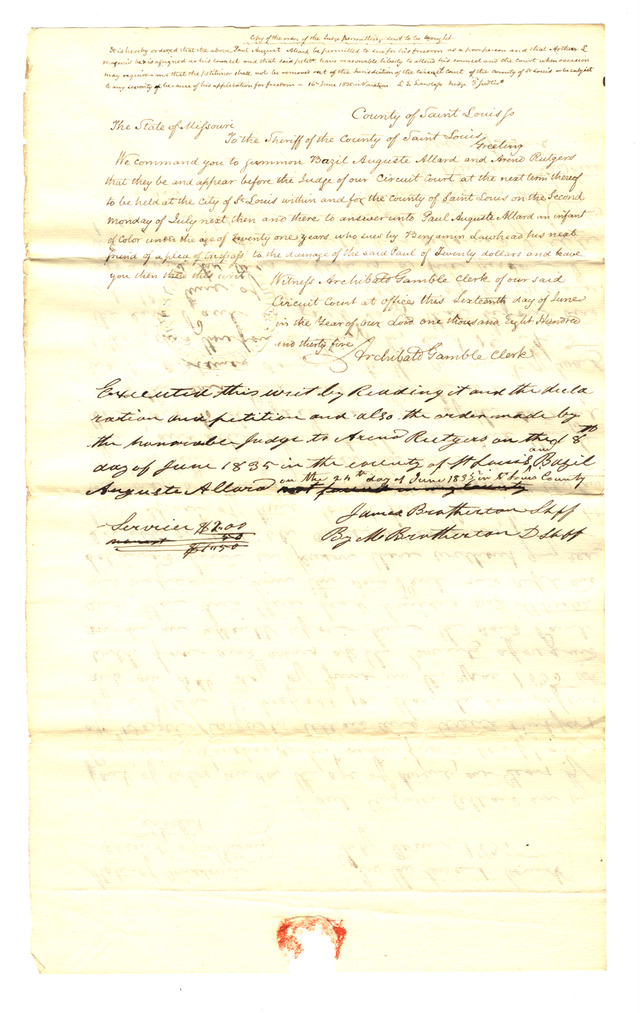 Copy of the order of the Judge permitting suit to be brought
It is hereby ordered that the above Paul August Allard be permitted to sue for his freedom as a poor person and that Arthur L
Maginnis be assigned as his counsel and that said petitr have reasonable liberty to attend his counsel and the court when occasion
may require and that the petitioner shall not be removed out of the jurisdiction of the Circuit court of the county of St Louis or be subject
to any severity because of his application for freedom – 16th June 1835 in vacation L E Lawless Judge 3d Jud Cirt
County of Saint Louis Ss
The State of Missouri
To the Sheriff of the County of Saint Louis
Greeting
We command you to Summon Bazil Auguste Allard and Arend Rutgers
that they be and appear before the Judge of our Circuit Court at the next term thereof
to be held at the City of St Louis within and for the County of Saint Louis on the Second
Monday of July next then and there to answer unto Paul Auguste Allard an infant
of Color under the age of twenty one years who sues by Benjamin Lawhead his next
friend of a plea of trespass to the damage of the said Paul of Twenty dollars and have
you then there this writ
Witness Archibald Gamble Clerk of our said
Circuit Court at office this Sixteenth day of June
in the Year of our Lord one thousand Eight Hundred
and thirty five
Archibald Gamble Clerk
Executed this writ by Reading it and the decla
ration and petition and also the order made by
the honorable Judge to Arend Rutgers on the 18th
day of June 1835 in the county of St Louis, and Bazil
Auguste Allard on the 24th day of June 1835 in St Louis County not found in my County
James Brotherton Shff
By M Brotherton D Shff
Service $2.00
50
$1.50